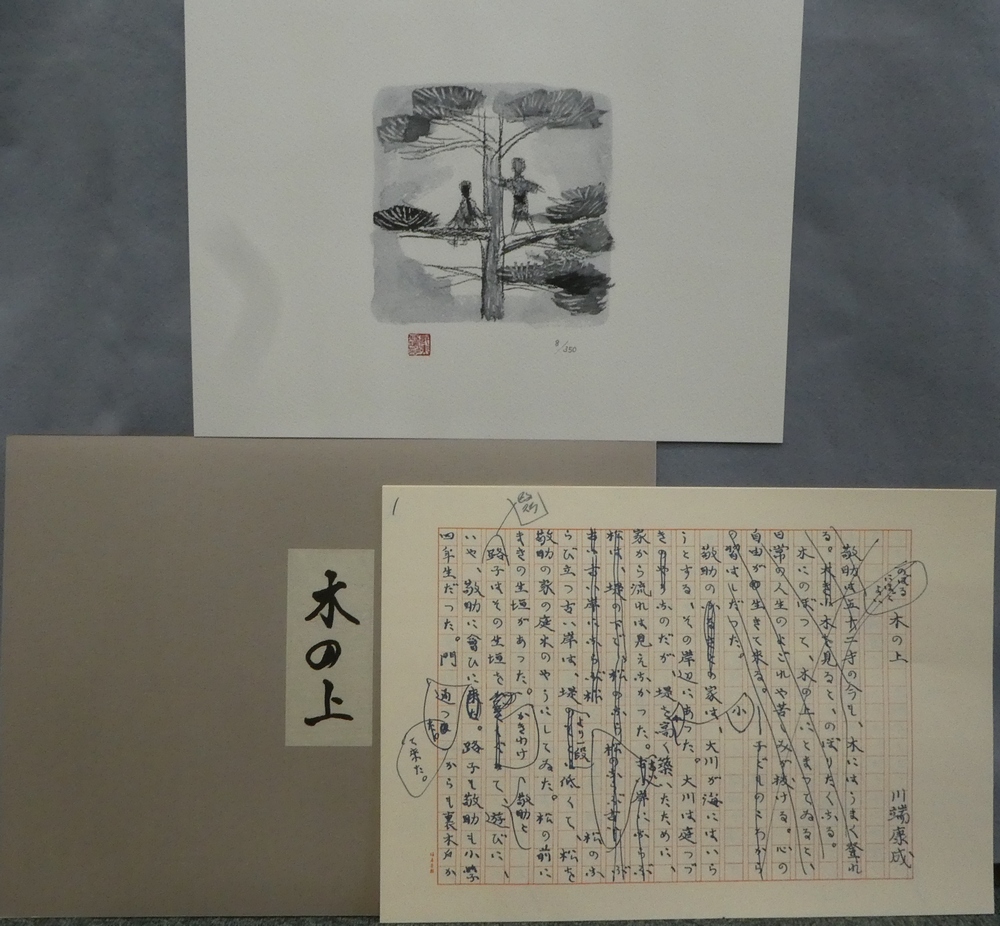 8/350
木の上
木の上
川端康成
敬助は五十二才の今も、木にはうまく登れ
る。大きい木を見ると、のぼりたくなる。
木にのぼつて、木の上にとまつてゐると、
日常の人生のよごれや苦しみが抜ける。心の
自由が生きて来る。――子どものころから
の習はしだつた。
敬助の家は、大川が海にはいら
うとする、その岸辺にあつた。大川は庭つづ
きのやうなのだが、堤を高く築いたために、
家から流れは見えなかつた。
らび立つ古い岸は、堤より一段低くて、松を
敬助の家の庭木のやうにしてゐた。松の前に
まきの生垣があつた。
路子はその生垣をかきわけて、敬助と遊びに、
いや、敬助に會ひに来た。路子も敬助も小学
四年生だつた。門からも裏木戸か
通つて来た。
小
1